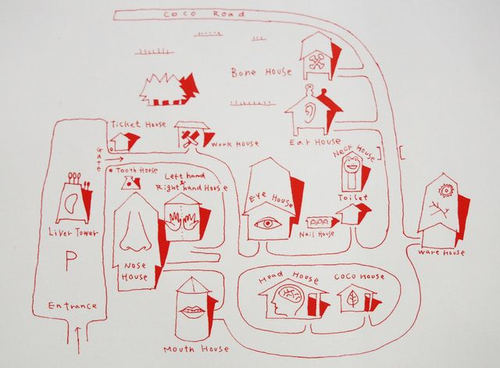 COCO Road
Bone House
Ear House
Ticket House
Work House
Neck House
Gate
Tooth House
Left hand
&
Right hand House
Eye House
Toilet
Nail House
Liver Tower
P
Nose
House
Ware house
Head House
COCO House
Entrance
Mouth House